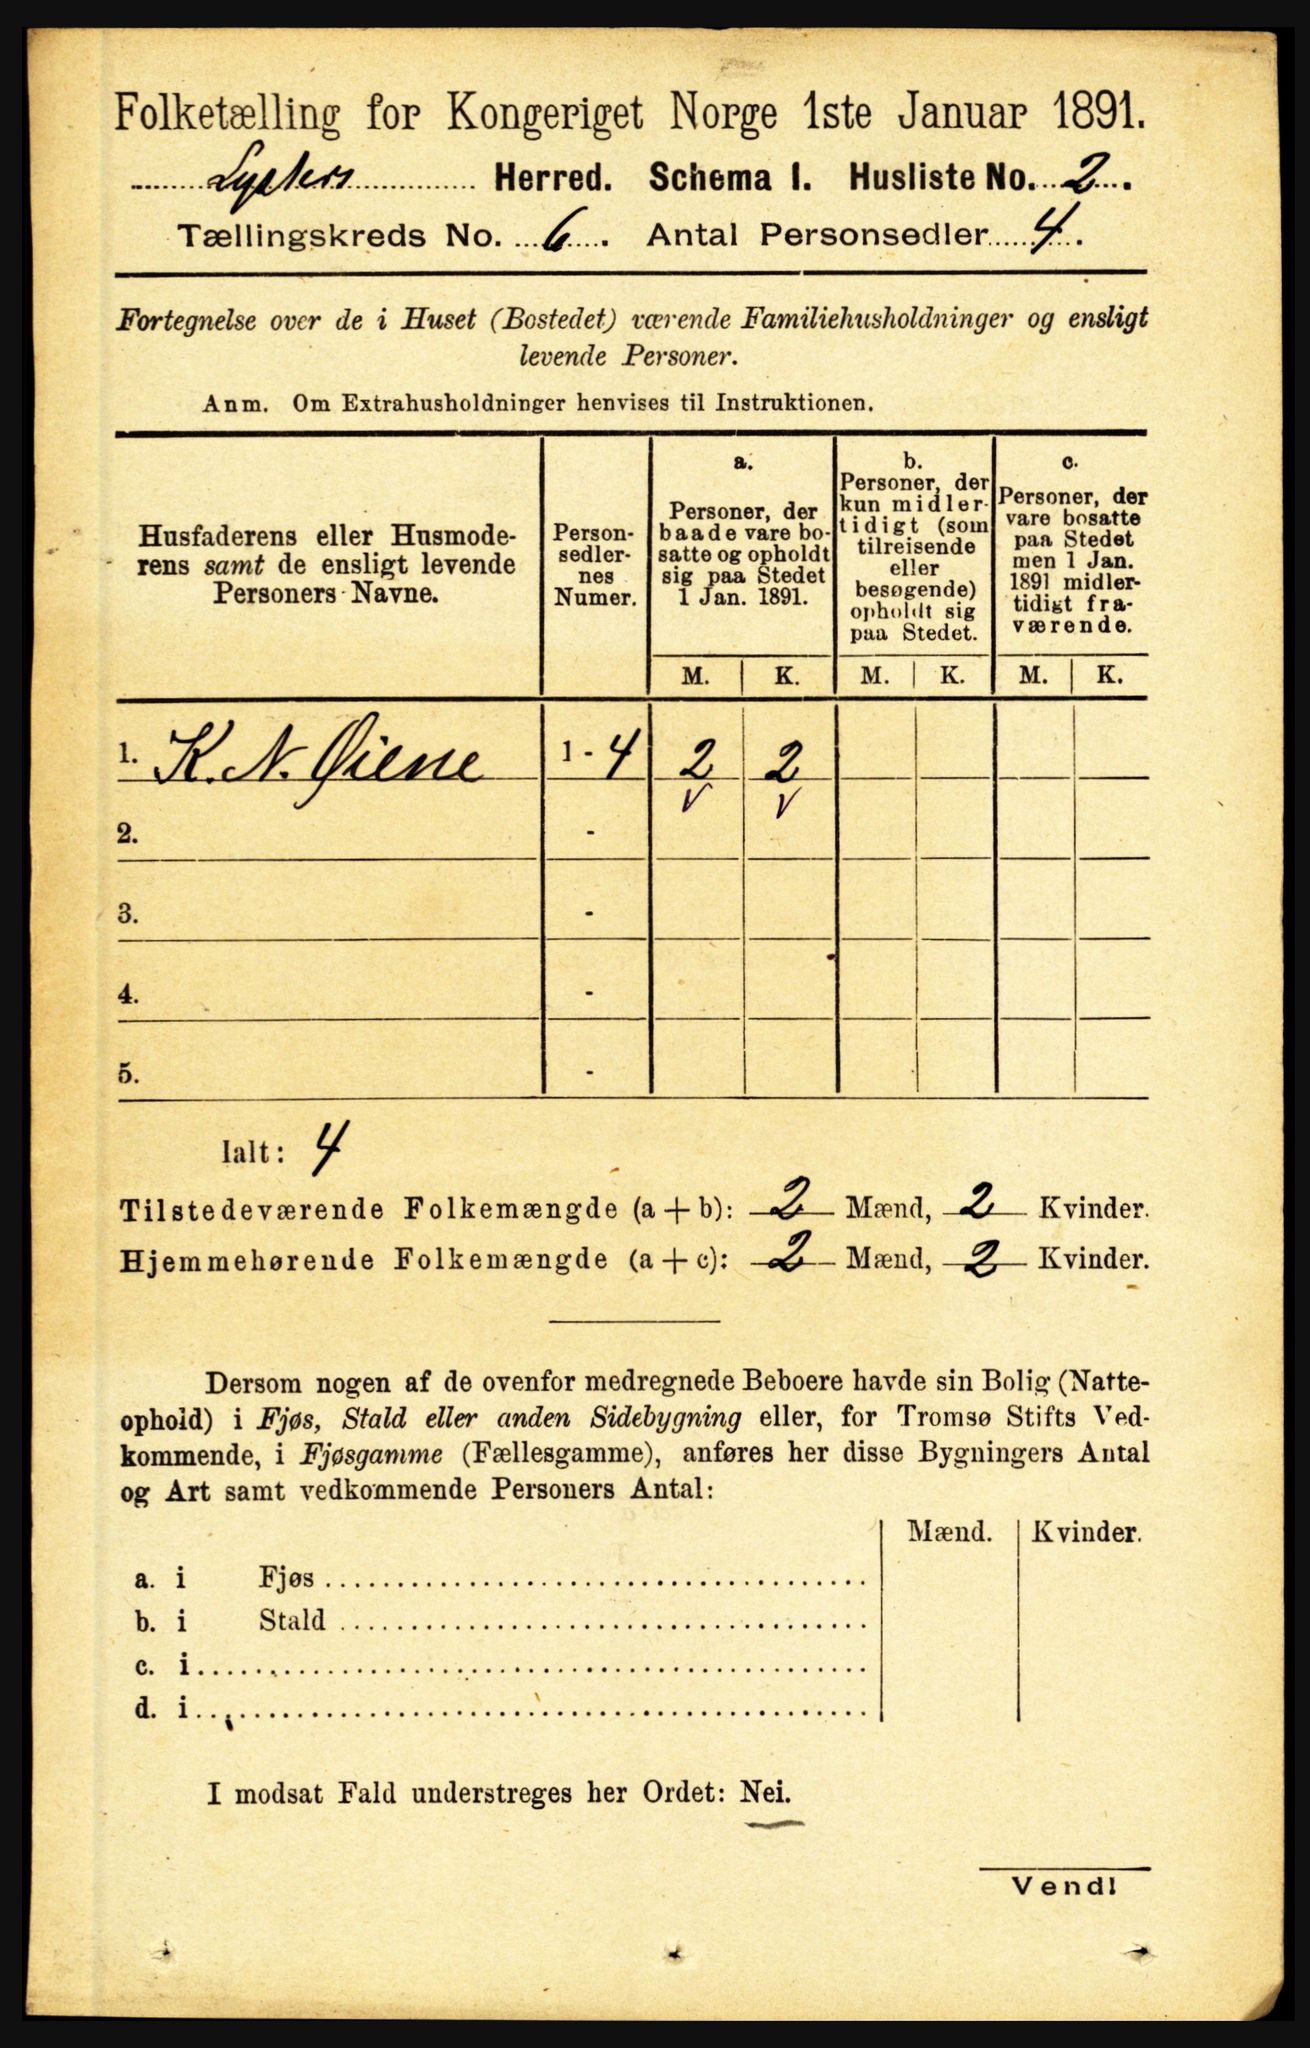 Folketælling for Kongeriget Norge 1ste Januar 1891.
Lysters Herred. Schema I. Husliste No. 2.
Tællingskreds No. 6. Antal Personsedler 4.
Fortegnelse over de i Huset (Bostedet) værende Familiehusholdninger og ensligt
levende Personer.
Anm. Om Extrahusholdninger henvises til Instruktionen.
Husfaderens eller Husmode-
rens samt de ensligt levende
Personers Navne.
Person-
sedler-
nes
Numer.
a.
Personer, der
baade vare bo-
satte og opholdt
sig paa Stedet
1 Jan. 1891.
b.
Personer, der
kun midler-
tidigt (som
tilreisende
eller
besøgende)
opholdt sig
paa Stedet.
c.
Personer, der
vare bosatte
paa Stedet
men 1 Jan.
1891 midler-
tidigt fra-
værende.
M. K. M. K. M. K.
1. K. N. Øiene 1 - 4 2 2
v v
2. -
3. -
4. -
5. -
Ialt: 4
Tilstedeværende Folkemængde (a + b): 2 Mænd, 2 Kvinder.
Hjemmehørende Folkemængde (a + c): 2 Mænd, 2 Kvinder.
Dersom nogen af de ovenfor medregnede Beboere havde sin Bolig (Natte-
ophold) i Fjøs, Stald eller anden Sidebygning eller, for Tromsø Stifts Ved-
kommende, i Fjøsgamme (Fællesgamme), anføres her disse Bygningers Antal
og Art samt vedkommende Personers Antal:
Mænd. Kvinder.
a. i Fjøs
b. i Stald
c. i
d. i
I modsat Fald understreges her Ordet: Nei.
Vend!